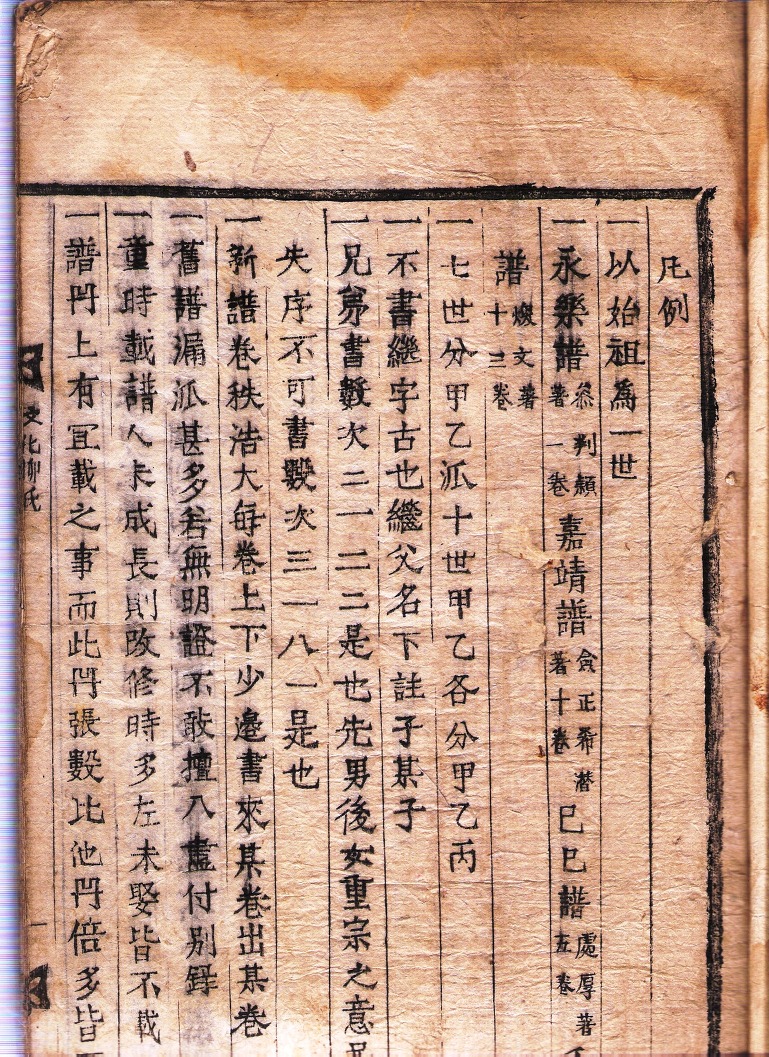 凡例
一以始祖為一世
一永樂譜 參判潁著一卷 嘉靖譜 僉正希潛著十卷 己巳譜 處厚著五卷
譜 煥文著十三卷
一七世分甲乙派十世甲乙各分甲乙丙
一不書繼字古也繼父名下註子某子
一兄弟書數次二一二二是也先男後女重宗之意
失序不可書數次三一八一是也
一新譜卷秩浩大每卷上下少邊書來某卷出某卷
一舊譜漏派甚多若無明證不敢擅入盡付別錄
一童時載譜人未成長則改修時多在未娶皆不載
一譜冊上有冝載之事而此冊張數比他冊倍多皆
文化柳氏
一